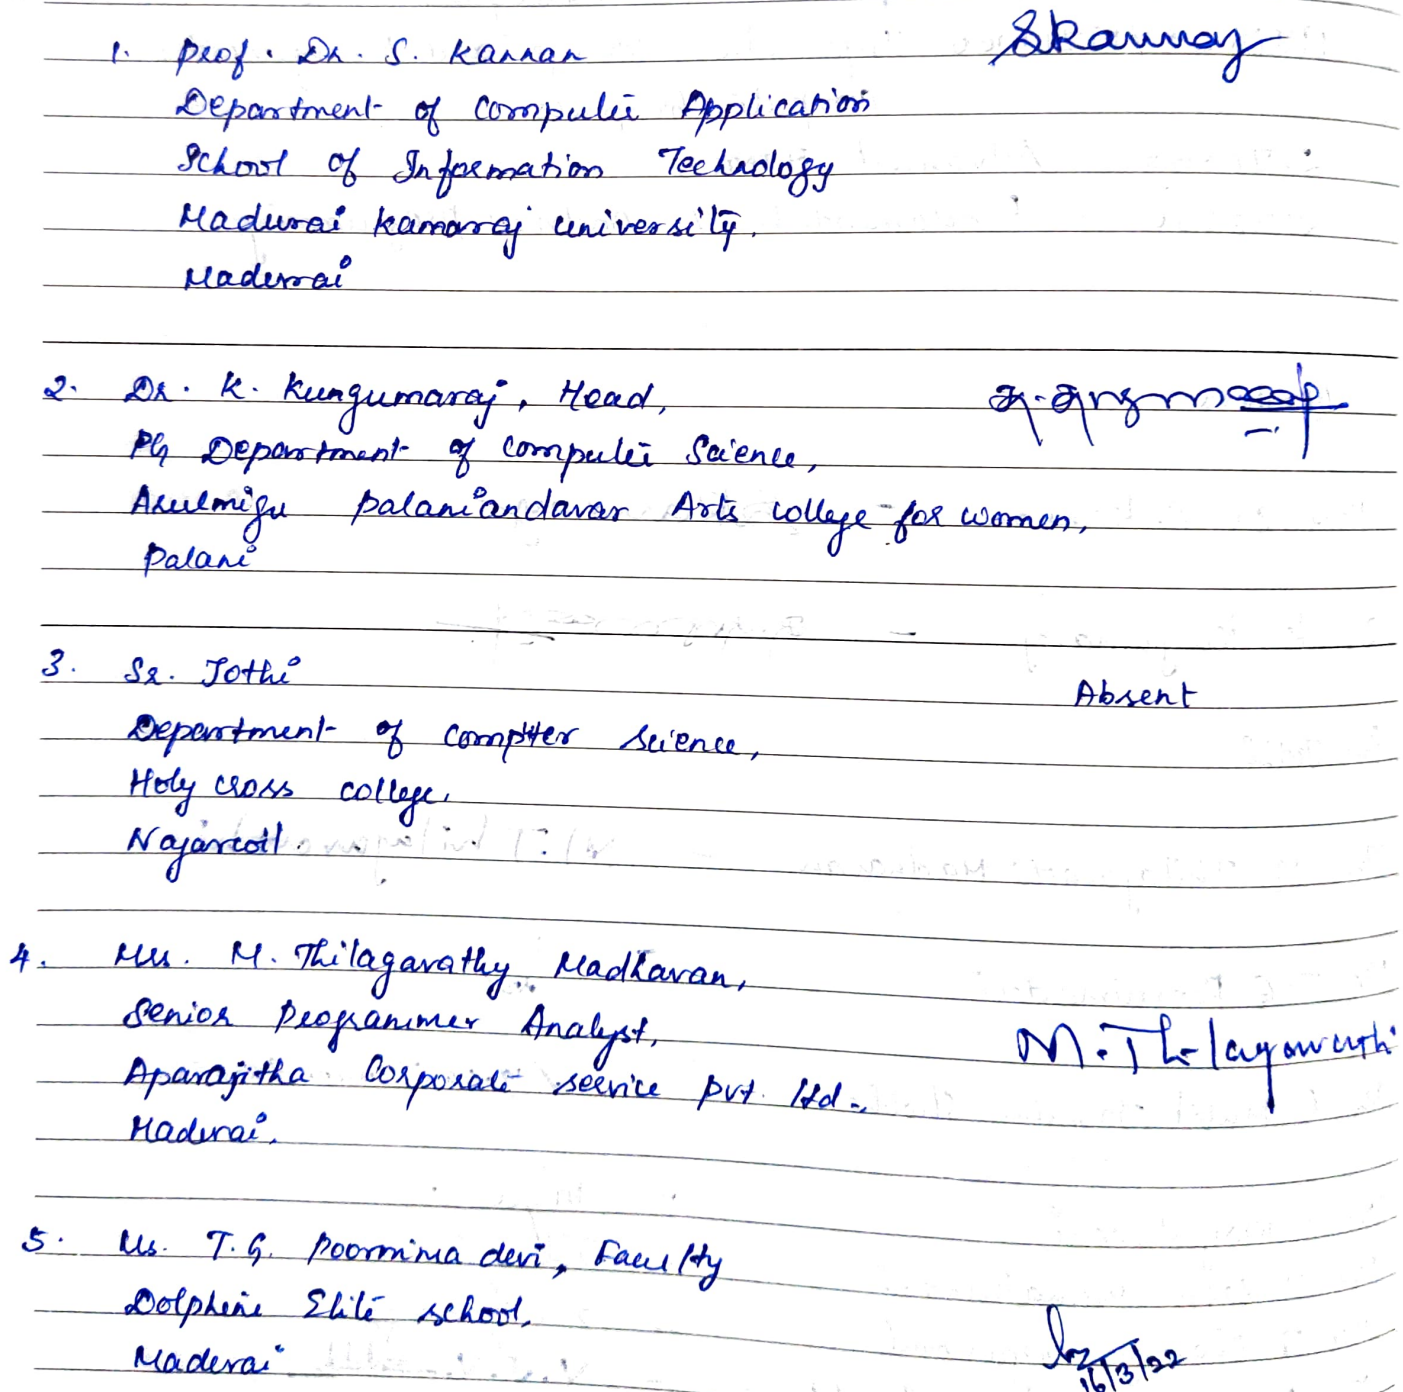 1. Prof. Dr. S. Kannan
SKannan
Department of Computer Application
School of Information Technology
Madurai Kamaraj University.
Madurai
2. Dr. K. Kungumaraj, Head,
PG Department of Computer Science,
Arulmigu Palaniandavar Arts college for women,
Palani
3. Sr. Jothi
Absent
Department of Compter Science,
Holy cross college,
Nagarcoil.
4. Mrs. M. Thilagavathy Madhavan,
Senior Programmer Analyst,
M. Thilagavathi
Aparajitha Corporate service pvt. ltd.,
Madurai.
5. Ms. T.G. Poornima devi, Faculty
Dolphine Elite school,
Madurai
16/3/22